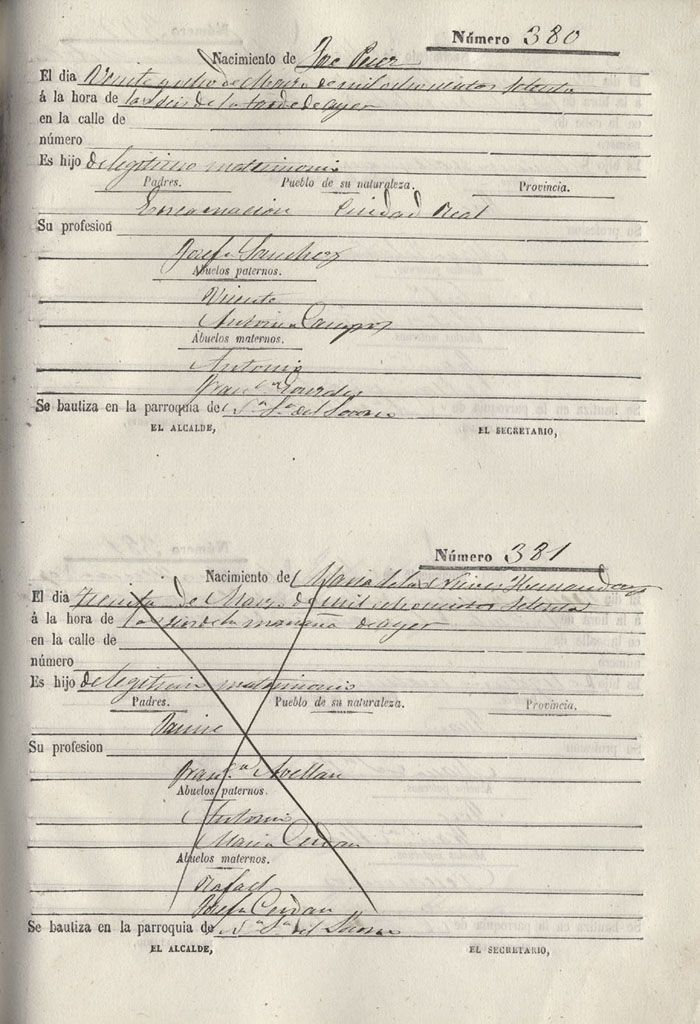 Número 380
Nacimiento de Jose Perez
El dia Veinte y ocho de Marzo de mil ochocientos setenta
á la hora de las seis de la tarde de ayer
en la calle de
número
Es hijo de legitimo matrimonio
Padres. Pueblo de su naturaleza. Provincia.
Encarnacion Ciudad Real
Su profesion
Josefa Sanchez
Abuelos paternos.
Vicente
Antonia Campos
Abuelos maternos.
Antonio
Franca
Se bautiza en la parroquia de Na Sa del Socorro
EL ALCALDE, EL SECRETARIO,
Número 381
Nacimiento de Maria de las Nieves Hernandez
El dia Treinta de Marzo de mil ochocientos setenta
á la hora de las seis de la mañana de ayer
en la calle de
número
Es hijo de legitimo matrimonio
Padres. Pueblo de su naturaleza. Provincia.
Jaime
Su profesion
Franca Avellan
Abuelos paternos.
Antonio
Maria Cerdan
Abuelos maternos.
Rafael
Josefa Cerdan
Se bautiza en la parroquia de Na Sa del Socorro
EL ALCALDE, EL SECRETARIO,